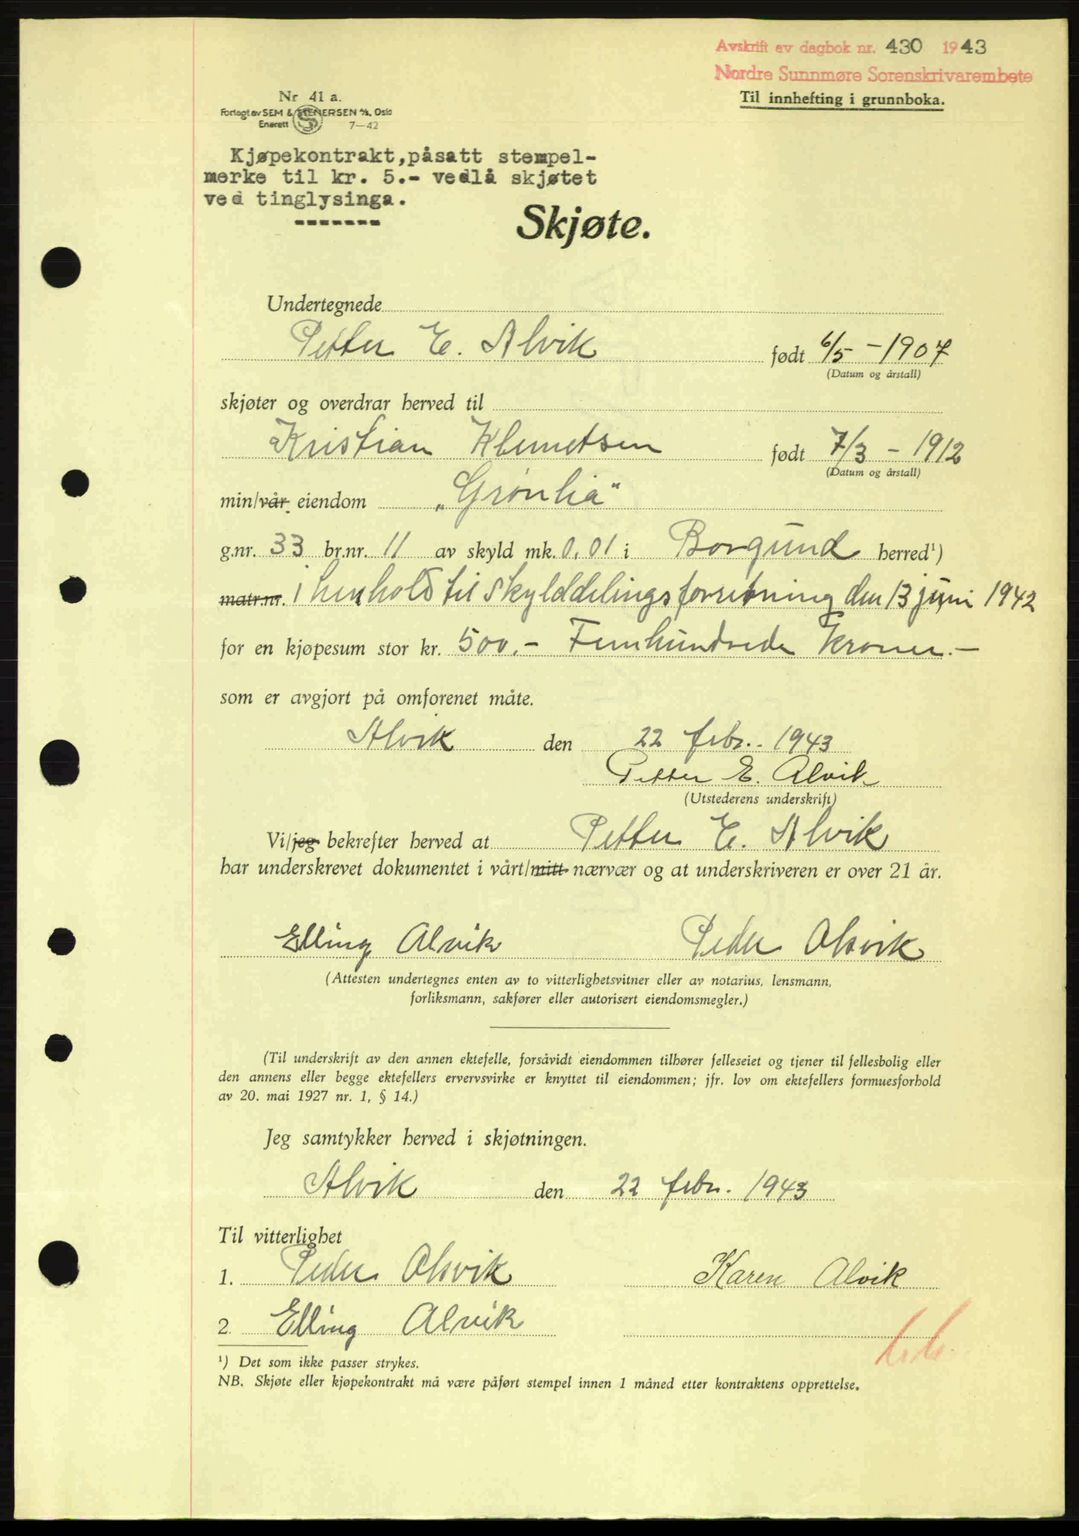 Avskrift av dagbok nr. 430 1943
Nordre Sunnmøre Sorenskrivarembete
Til innhefting i grunnboka.
Nr 41 a.
Forlagt av SEM & STENERSEN A/S, Oslo
Enerett 7-42
Kjøpekontrakt, påsatt stempel-
merke til kr. 5.- vedlå skjøtet
ved tinglysinga.
-------
Skjøte.
Undertegnede
Petter E. Alvik født 6/5 - 1907
(Datum og årstall)
skjøter og overdrar herved til
Kristian Klemetsen født 7/3 - 1912
(Datum og årstall)
min/vår eiendom „Grønlia“
g.nr. 33 br.nr. 11 av skyld mk. 0,01 i Borgund herred¹)
matr.nr. i henhold til skylddelingsforretning den 13 juni 1942
for en kjøpesum stor kr. 500.- Femhundrede kroner.-
som er avgjort på omforenet måte.
Alvik den 22 febr. 1943
Petter E. Alvik
(Utstederens underskrift)
Vi/jeg bekrefter herved at Petter E. Alvik
har underskrevet dokumentet i vårt/mitt nærvær og at underskriveren er over 21 år.
Elling Alvik Peder Alsvik
(Attesten undertegnes enten av to vitterlighetsvitner eller av notarius, lensmann,
forliksmann, sakfører eller autorisert eiendomsmegler.)
(Til underskrift av den annen ektefelle, forsåvidt eiendommen tilhører felleseiet og tjener til fellesbolig eller
den annens eller begge ektefellers ervervsvirke er knyttet til eiendommen; jfr. lov om ektefellers formuesforhold
av 20. mai 1927 nr. 1, § 14.)
Jeg samtykker herved i skjøtningen.
Alvik den 22 febr. 1943
Til vitterlighet
1. Peder Alsvik Karen Alvik
2 Elling Alvik
¹) Det som ikke passer strykes.
NB. Skjøte eller kjøpekontrakt må være påført stempel innen 1 måned etter kontraktens opprettelse.